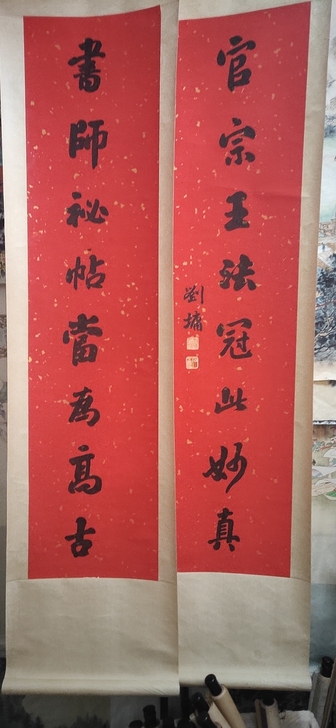 書師祕帖當為高古
官宗王法冠此妙真
劉墉